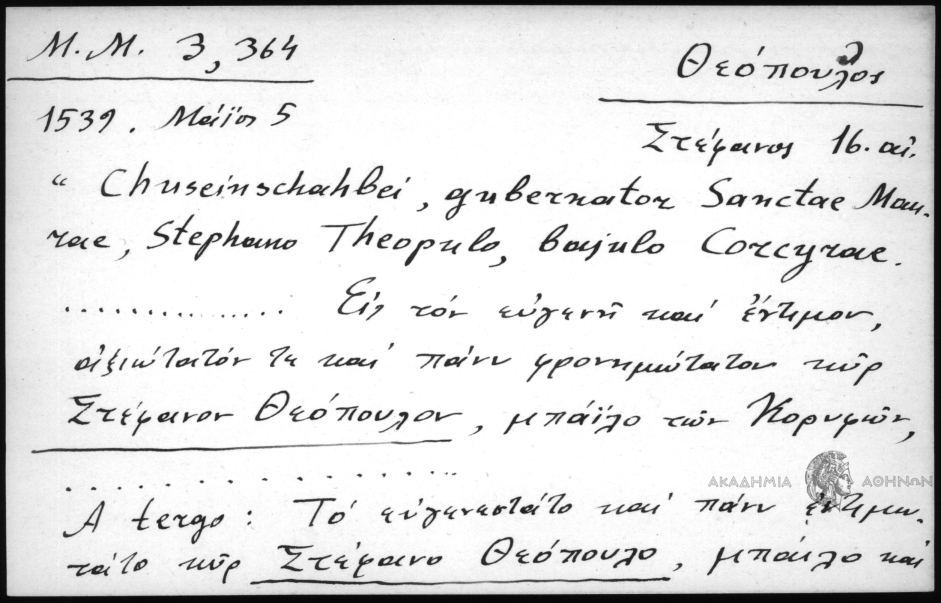 M.M. 3, 364
Θεόπουλος
1539. Μάϊος 5
Στέφανος 16. αἰ.
“ Chuseinschahbei, gubernator Sanctae Mau-
rae, Stephano Theopulo, bajulo Corcyrae.
.............. Εἰς τόν εὐγενῆ καί ἔντιμον,
ἀξιώτατόν τε καί πάνυ φρονημώτατον κῦρ
Στέφανον Θεόπουλον, μπάϊλο τῶν Κορυφῶν,
..................
ΑΚΑΔΗΜΙΑ ΑΘΗΝΩΝ
A tergo: Τό εὐγενεστάτο καί πάνυ ἐντιμω-
τάτο κῦρ Στέφανο Θεόπουλο, μπάιλο καί